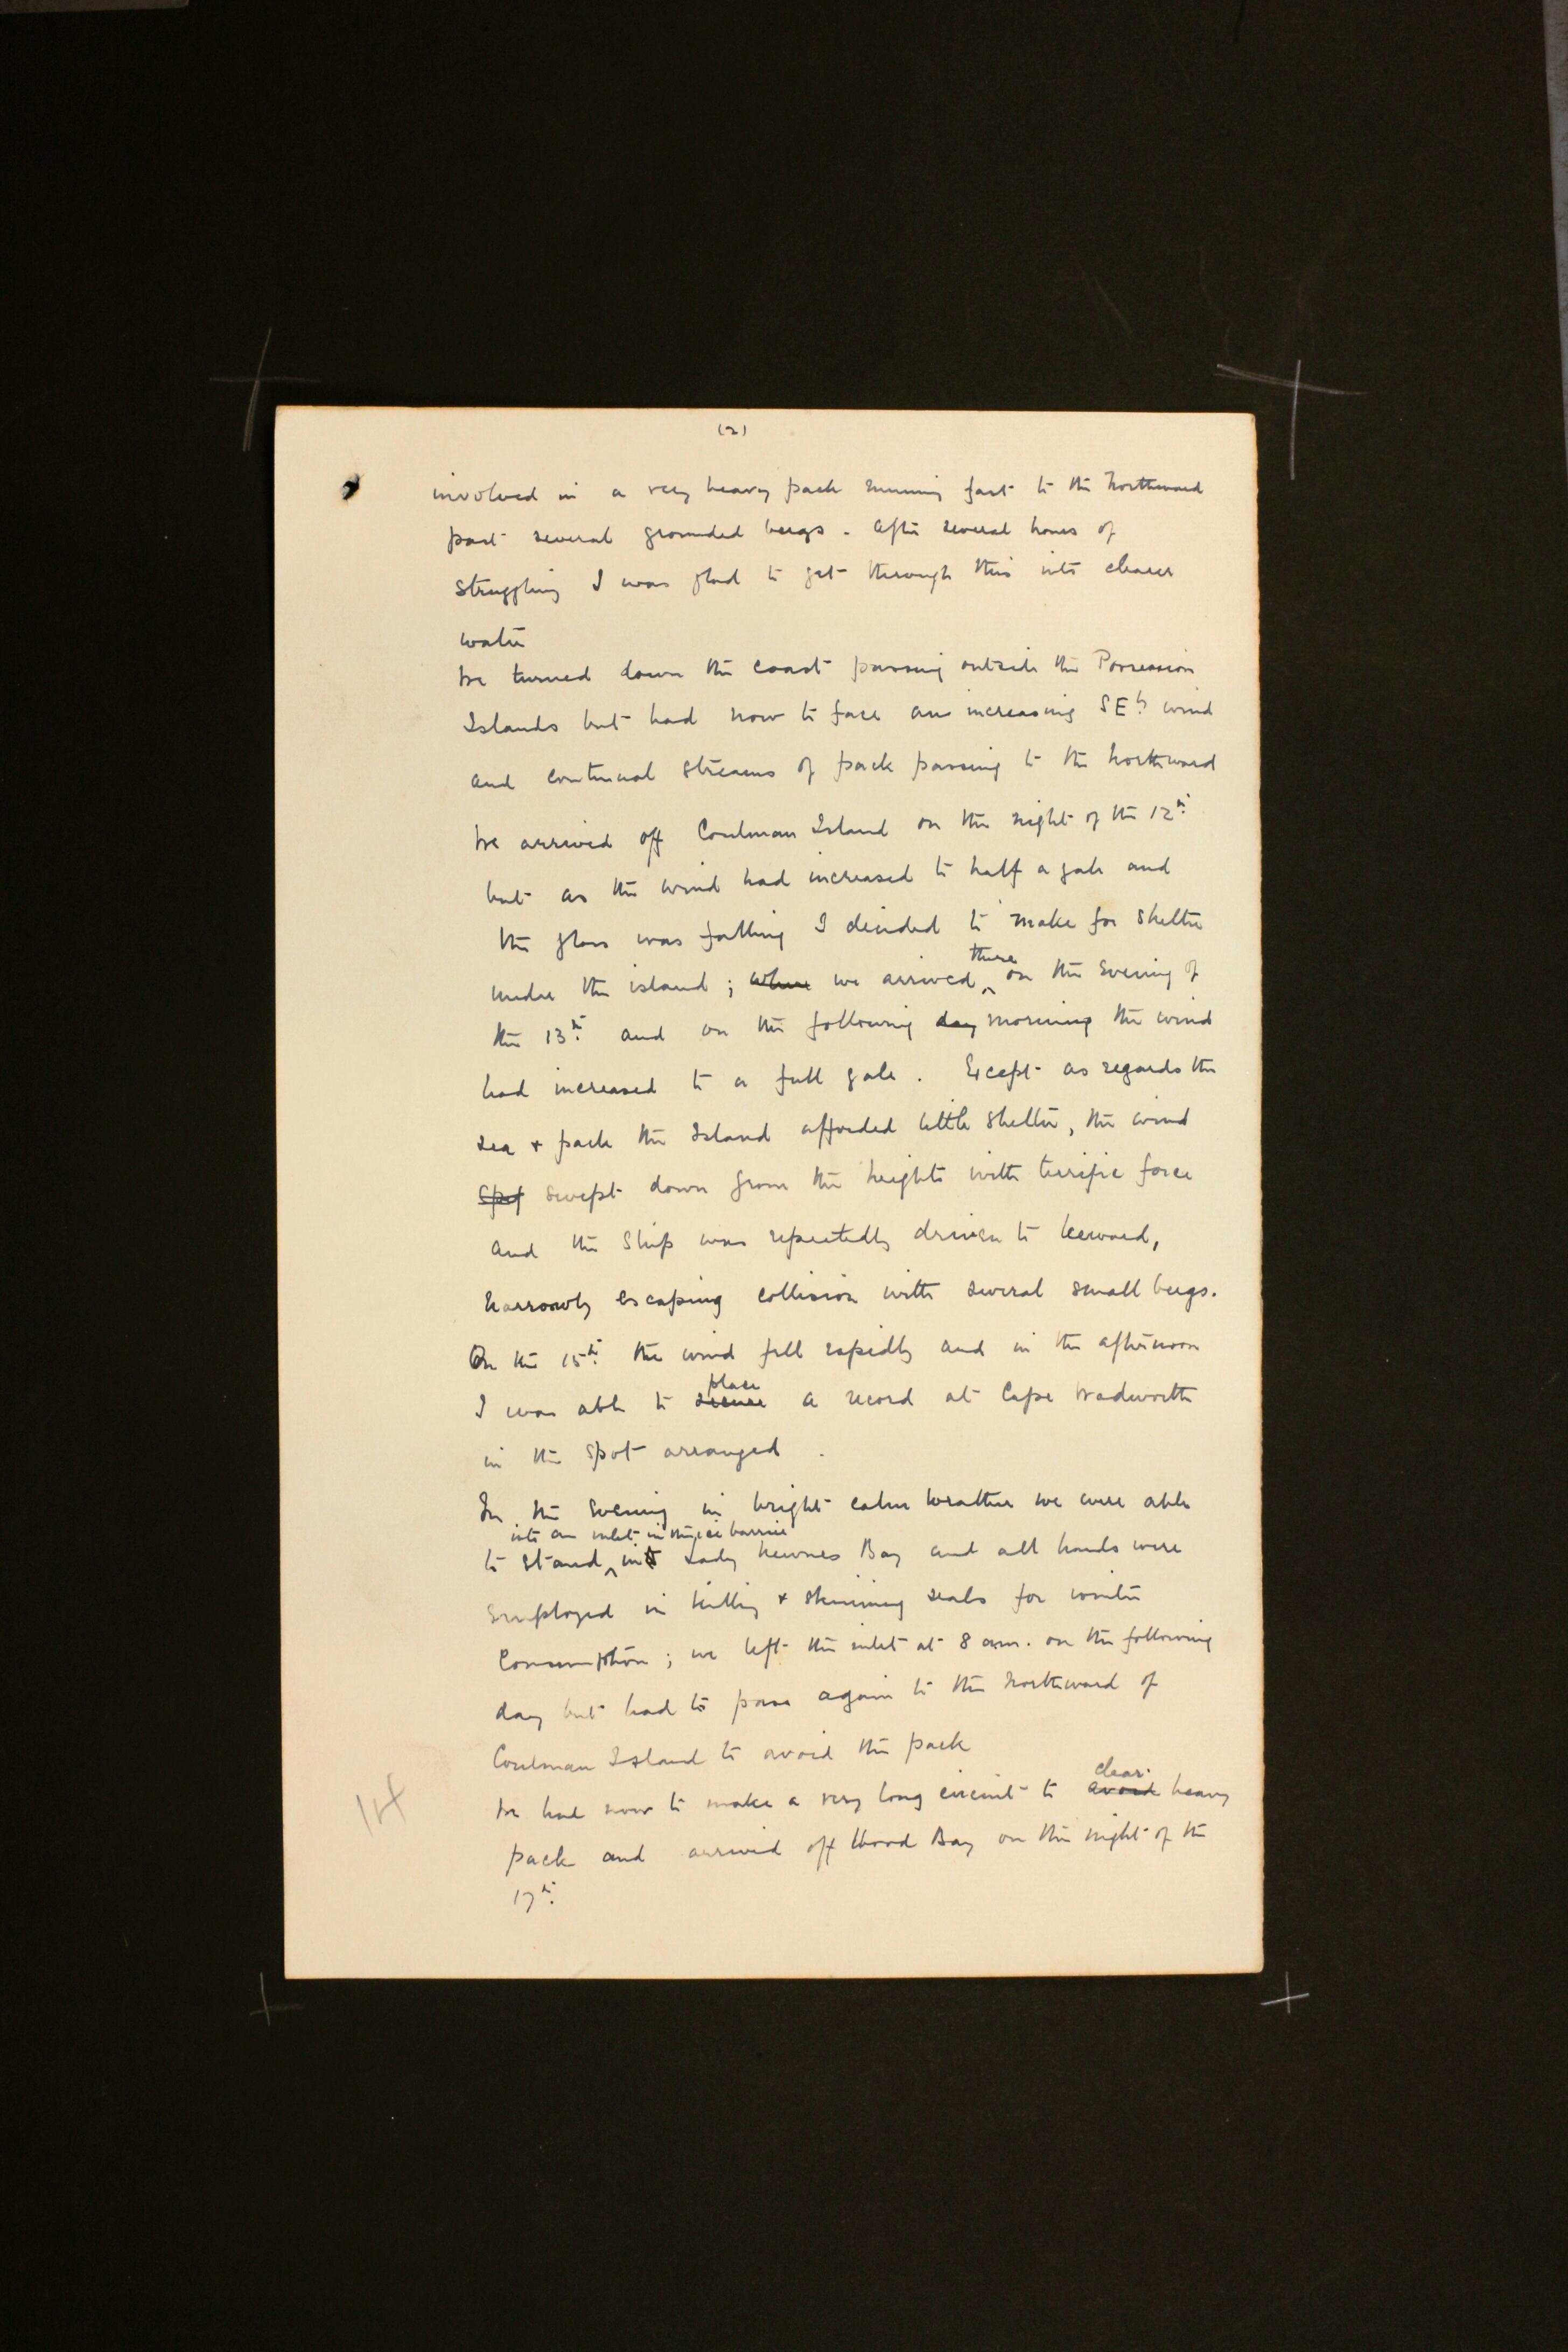 (2)
involved in a very heavy pack running fast to the Northward
past several grounded bergs. After several hours of
struggling I was glad to get through this into clearer
water
We turned down the coast passing outside the Possession
Islands but had now to face an increasing SEly wind
and continual streams of pack passing to the Northward
We arrived off Coulman Island on the night of the 12th
but as the wind had increased to half a gale and
the glass was falling I decided to make for shelter
there
under the island; where we arrived ^ on the evening of
the 13th and on the following day morning the wind
had increased to a full gale. Except as regards the
sea + pack the Island afforded little shelter, the wind
spef swept down from the heights with terrific force
and the ship was repeatedly driven to leeward,
narrowly escaping collision with several small bergs.
On the 15th the wind fell rapidly and in the afternoon
place
I was able to secure a record at Cape Wadworth
in the spot arranged.
In the evening in bright calm weather we were able
into an inlet in the ice barrier
to stand ^ in Lady Newnes Bay and all hands were
employed in killing + skinning seals for winter
consumption; we left the inlet at 8 a.m. on the following
day but had to pass again to the Northward of
Coulman Island to avoid the pack
clear
We had now to make a very long circuit to avoid heavy
pack and arrived off Wood Bay on the night of the
17th